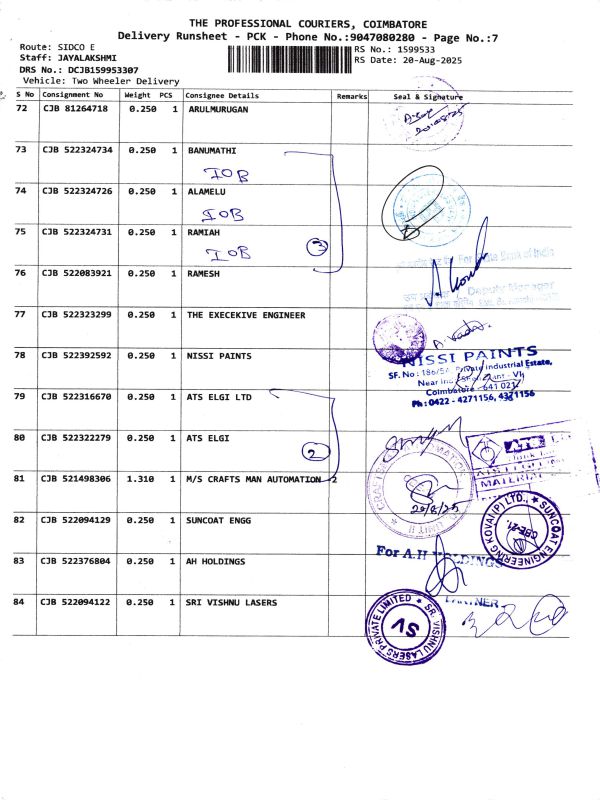 THE PROFESSIONAL COURIERS, COIMBATORE
Delivery Runsheet - PCK - Phone No.:9047080280 - Page No.:7
Route: SIDCO E
RS No.: 1599533
Staff: JAYALAKSHMI
RS Date: 20-Aug-2025
DRS No.: DCJB159953307
Vehicle: Two Wheeler Delivery
S No Consignment No Weight PCS Consignee Details Remarks Seal & Signature
72 CJB 81264718 0.250 1 ARULMURUGAN
73 CJB 522324734 0.250 1 BANUMATHI
IOB
74 CJB 522324726 0.250 1 ALAMELU
IOB
75 CJB 522324731 0.250 1 RAMIAH
IOB 3
For State Bank of India
76 CJB 522083921 0.250 1 RAMESH
Deputy Manager
77 CJB 522323299 0.250 1 THE EXECEKIVE ENGINEER
78 CJB 522392592 0.250 1 NISSI PAINTS
NISSI PAINTS
SF. No : 186/5A, Private Industrial Estate,
Near
Coimbatore - 641 021
Ph : 0422 - 4271156, 4371156
79 CJB 522316670 0.250 1 ATS ELGI LTD
80 CJB 522322279 0.250 1 ATS ELGI
2
ATS
MATERIAL
81 CJB 521498306 1.310 1 M/S CRAFTS MAN AUTOMATION 2
20/8/25
82 CJB 522094129 0.250 1 SUNCOAT ENGG
SUNCOAT ENGINEERING KOVAN(P) LTD.,
CBE-21.
83 CJB 522376804 0.250 1 AH HOLDINGS
For A.H HOLDINGS
PARTNER
84 CJB 522094122 0.250 1 SRI VISHNU LASERS
SRI VISHNU LASERS PRIVATE LIMITED
SV